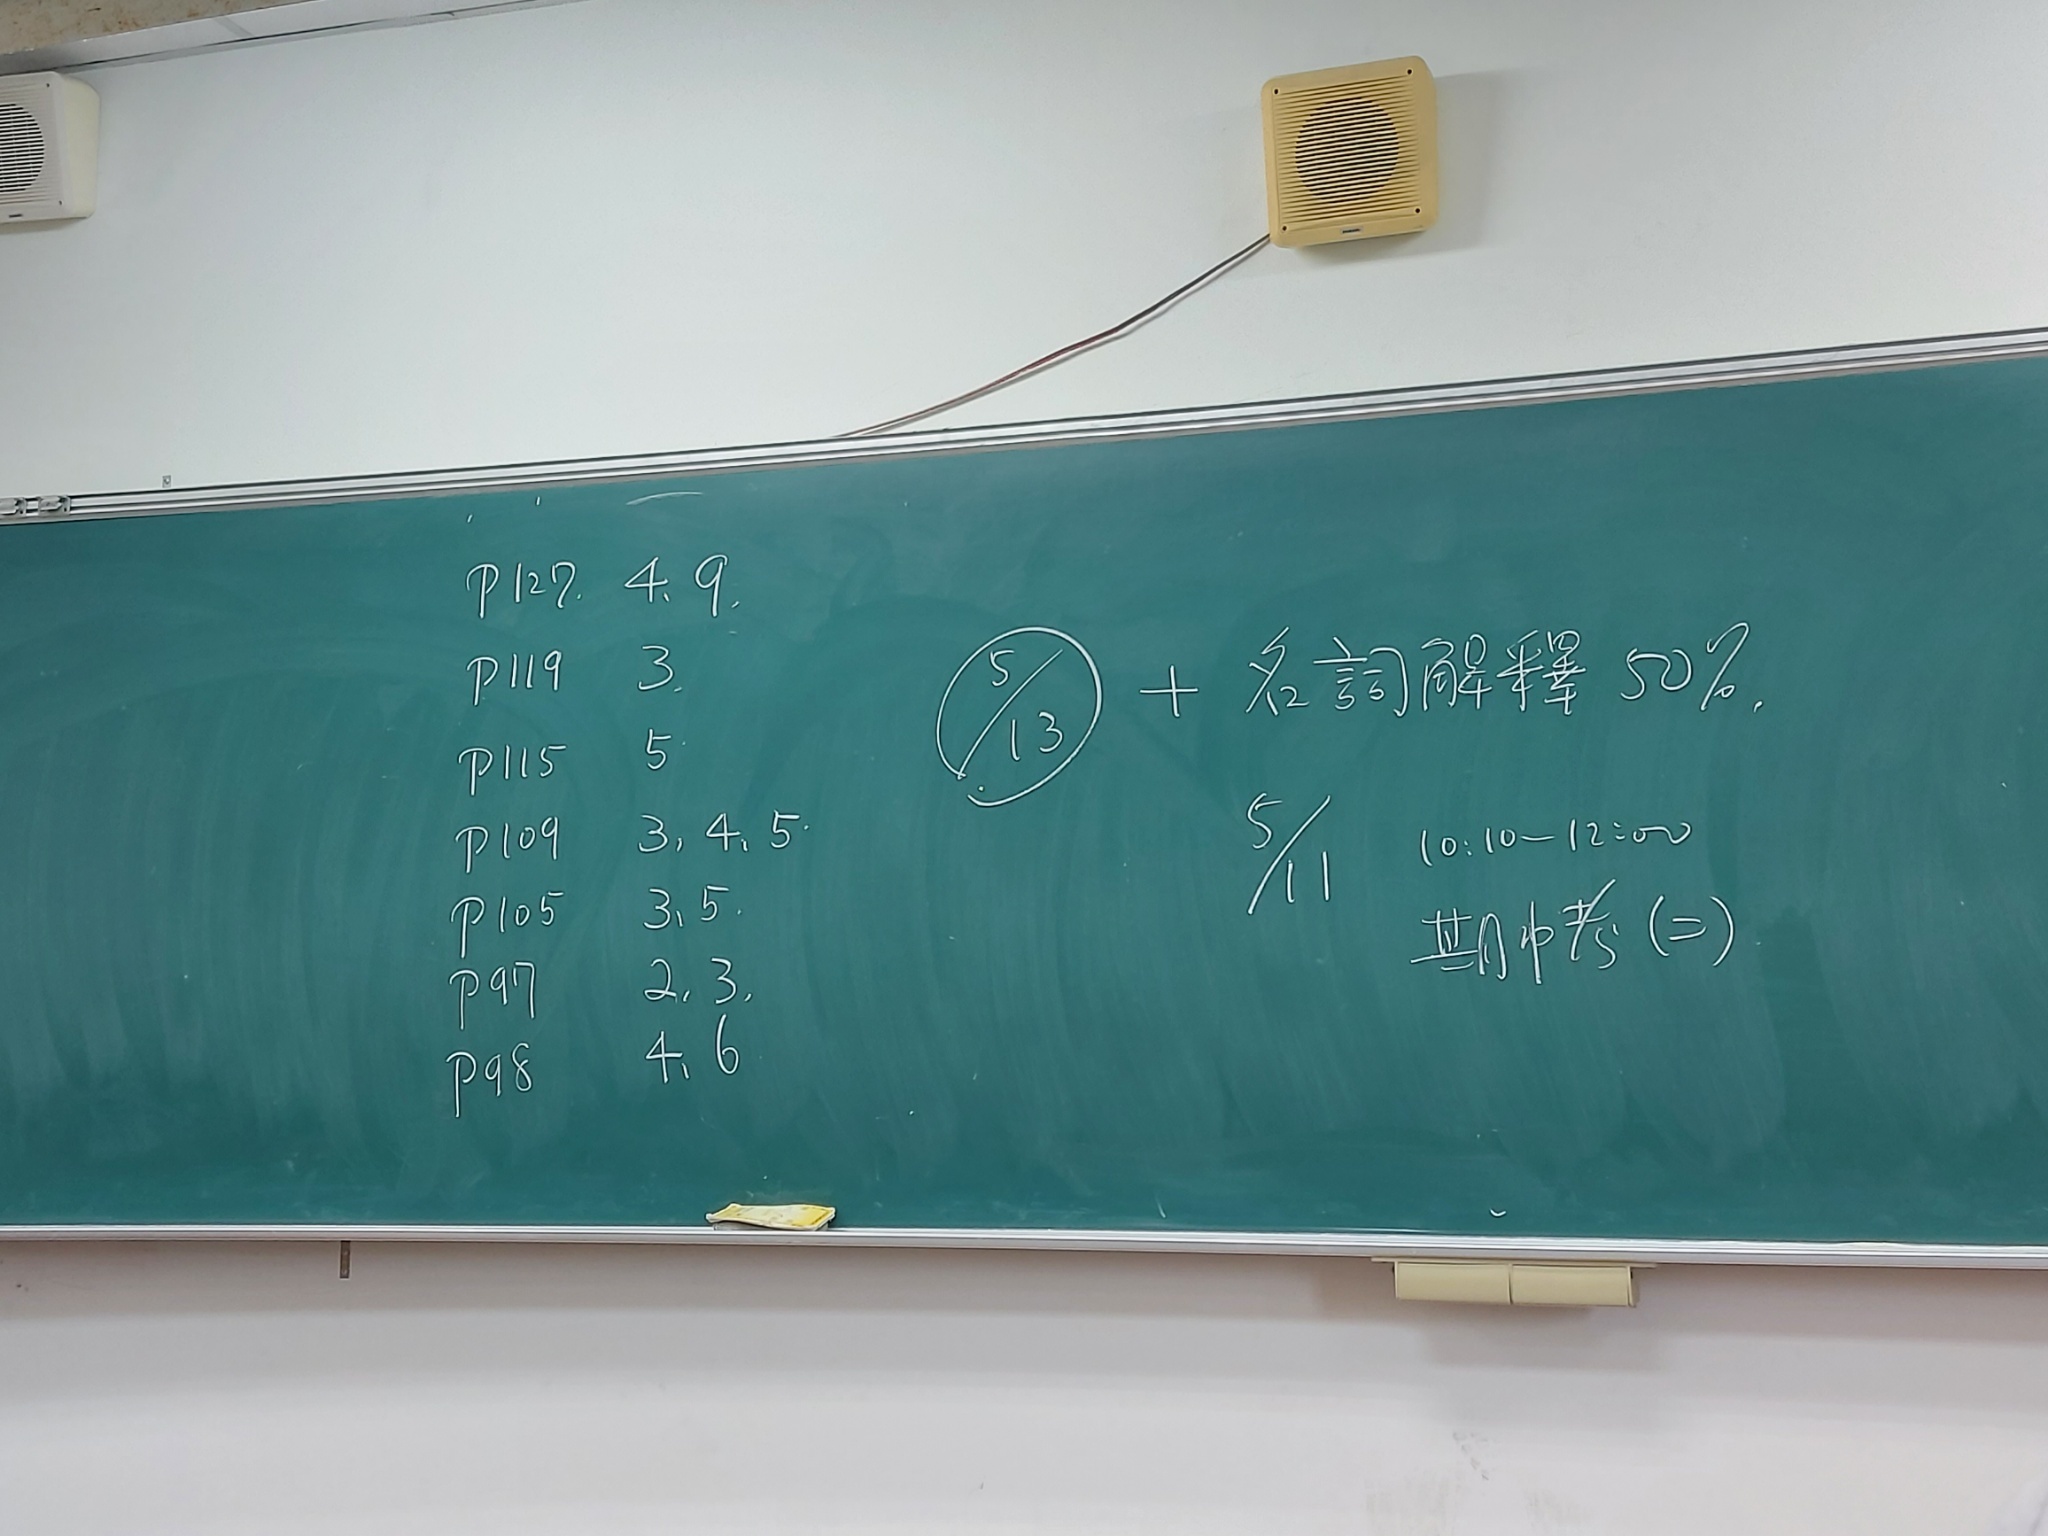 P127. 4、9.
P119 3.
P115 5.
P109 3、4、5.
P105 3、5.
P97 2、3.
P98 4、6
5/13 + 名詞解釋 50%.
5/11 10:10—12:00
期中考(二)